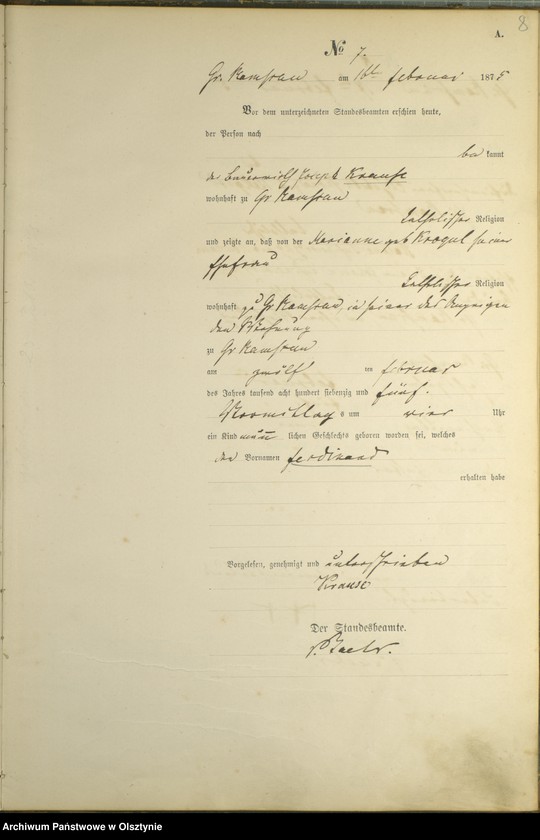 8
A.
No 7.
Gr. Ramsau am 16t Februar 1875
Vor dem unterzeichneten Standesbeamten erschien heute,
der Person nach
be kannt
der Joseph Krause
wohnhaft zu Gr Ramsau
katholischer Religion
und zeigte an, daß von der Marianne geb Krogul seiner
Ehefrau
katholischer Religion
wohnhaft zu Gr Ramsau, in seiner des Anzeigen
den Wohnung
zu Gr Ramsau
am zwölf ten Februar
des Jahres tausend acht hundert siebenzig und fünf.
Vormittag s um vier Uhr
ein Kind männ lichen Geschlechts geboren worden sei, welches
den Vornamen Ferdinand
erhalten habe
Vorgelesen, genehmigt und unterschrieben
Krause
Der Standesbeamte.
Archiwum Państwowe w Olsztynie